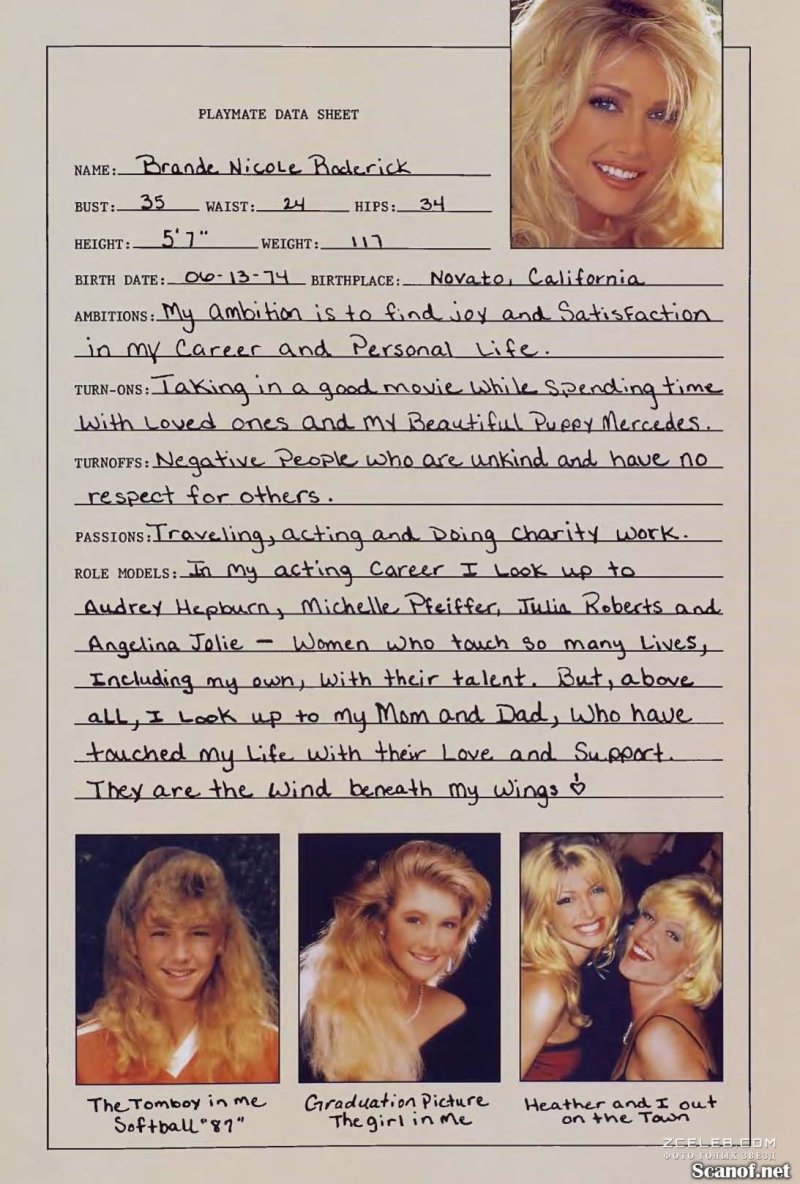 PLAYMATE DATA SHEET
NAME: Brande Nicole Roderick
BUST: 35 WAIST: 24 HIPS: 34
HEIGHT: 5'7" WEIGHT: 117
BIRTH DATE: 06-13-74 BIRTHPLACE: Novato, California
AMBITIONS: My ambition is to find joy and Satisfaction
in my Career and Personal Life.
TURN-ONS: Taking in a good movie while spending time
with Loved ones and my Beautiful Puppy Mercedes.
TURNOFFS: Negative People who are unkind and have no
respect for others.
PASSIONS: Traveling, acting and Doing charity work.
ROLE MODELS: In my acting Career I Look up to
Audrey Hepburn, Michelle Pfeiffer, Julia Roberts and
Angelina Jolie — Women who touch so many Lives,
Including my own, with their talent. But, above
all, I Look up to my Mom and Dad, who have
touched my Life with their Love and Support.
They are the wind beneath my wings
The Tomboy in me
Softball "87"
Graduation Picture
The girl in me
Heather and I out
on the Town
ZCELEB.COM
ФОТО ГОЛЫХ ЗВЕЗД
Scanof.net